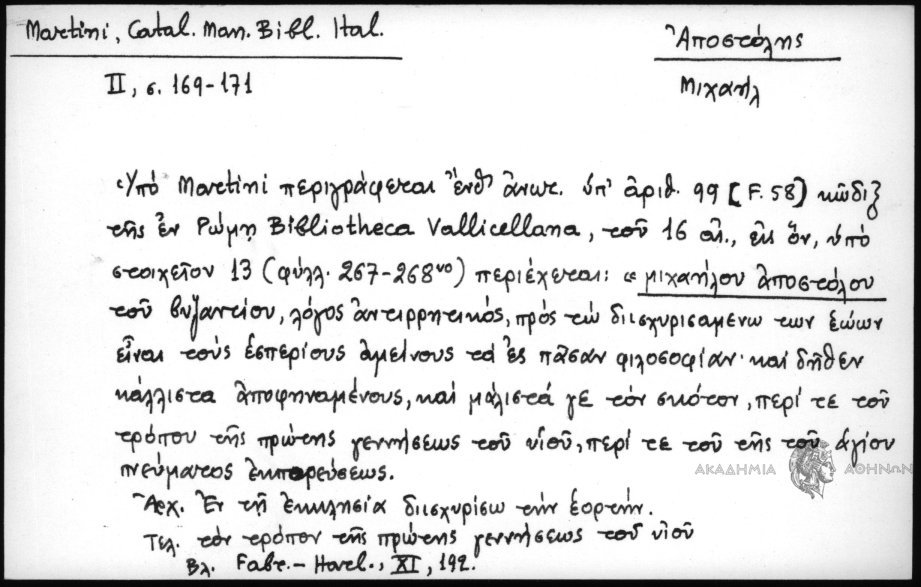 Martini, Catal. Man. Bibl. Ital.
Ἀποστόλης
II, σ. 169-171
Μιχαήλ
Ὑπό Martini περιγράφεται ἔνθ' ἀνωτ. ὑπ' ἀριθ. 99 [F. 58] κῶδιξ
τῆς ἐν Ρώμῃ Bibliotheca Vallicellana, τοῦ 16 αἰ., εἰς ὅν, ὑπό
στοιχεῖον 13 (φύλλ. 267-268νο) περιέχεται: « μιχαήλου ἀποστόλου
τοῦ βυζαντίου, λόγος ἀντιρρητικός, πρός τῶ διισχυρισαμένω των ἑώων
εἶναι τούς ἑσπερίους ἀμείνους τά ἐς πᾶσαν φιλοσοφίαν· καί δῆθεν
κάλλιστα ἀποφηναμένους, καί μάλιστά γε τόν σκότον, περί τε τοῦ
τρόπου τῆς πρώτης γεννήσεως τοῦ υἱοῦ, περί τε τοῦ τῆς τοῦ ἁγίου
πνεύματος ἐκπορεύσεως.
ΑΚΑΔΗΜΙΑ ΑΘΗΝΩΝ
Ἀρχ. Ἐν τῇ ἐκκλησία διισχυρίσω τήν ἑορτήν.
Τελ. τόν τρόπον τῆς πρώτης γεννήσεως τοῦ υἱοῦ
Βλ. Fabr.- Harl., XI, 192.